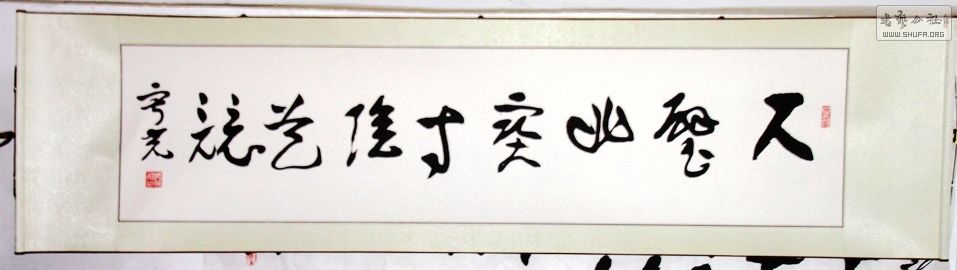 尺璧非寶寸陰是競
書藝公社
WWW.SHUFA.ORG